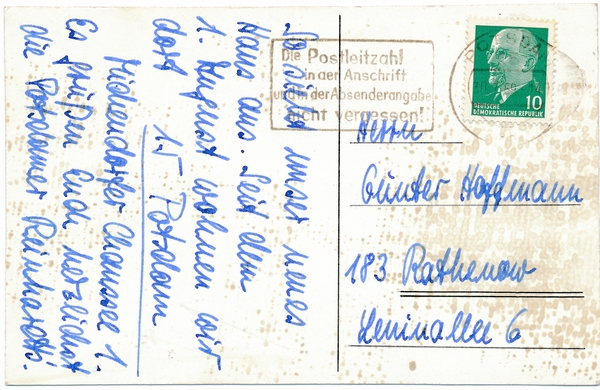 So sieht unser neues
Haus aus. Seit dem
1. August wohnen wir
dort 15 Potsdam
Michendorfer Chaussee 1.
Es grüßen Euch herzlichst
die Potsdamer Reinhardts!
Die Postleitzahl
in der Anschrift
und in der Absenderangabe
nicht vergessen!
POTSDAM
10
DEUTSCHE
DEMOKRATISCHE REPUBLIK
Herrn
Günter Hoffmann
183 Rathenow
Leninallee 6